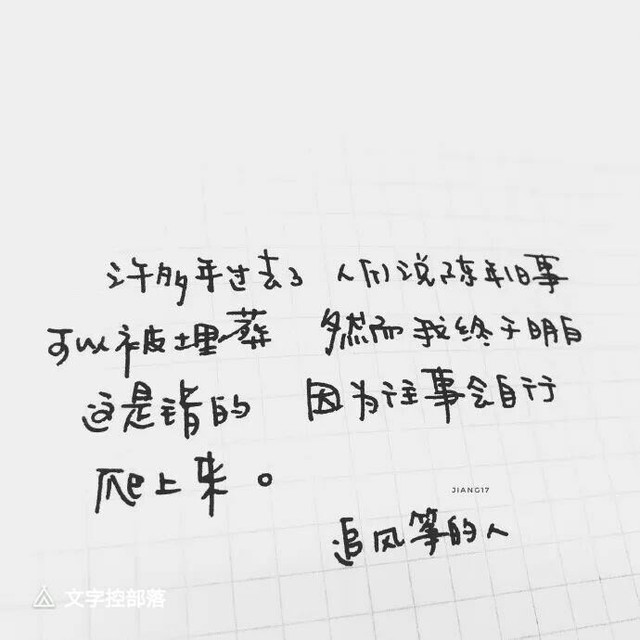 许多年过去了 人们说陈年旧事
可以被埋葬 然而我终于明白
这是错的 因为往事会自行
爬上来。
JIANG17
追风筝的人
文字控部落